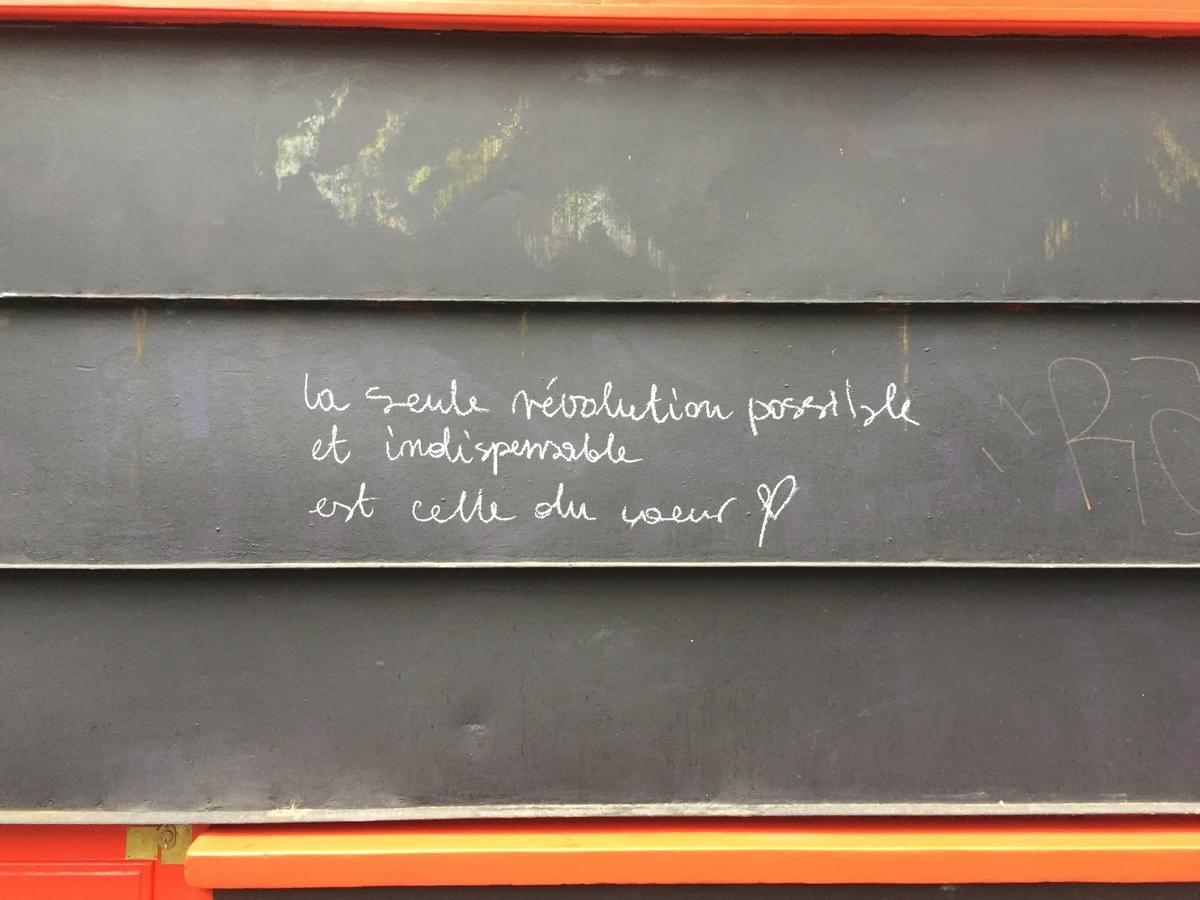 la seule révolution possible
et indispensable
est celle du coeur